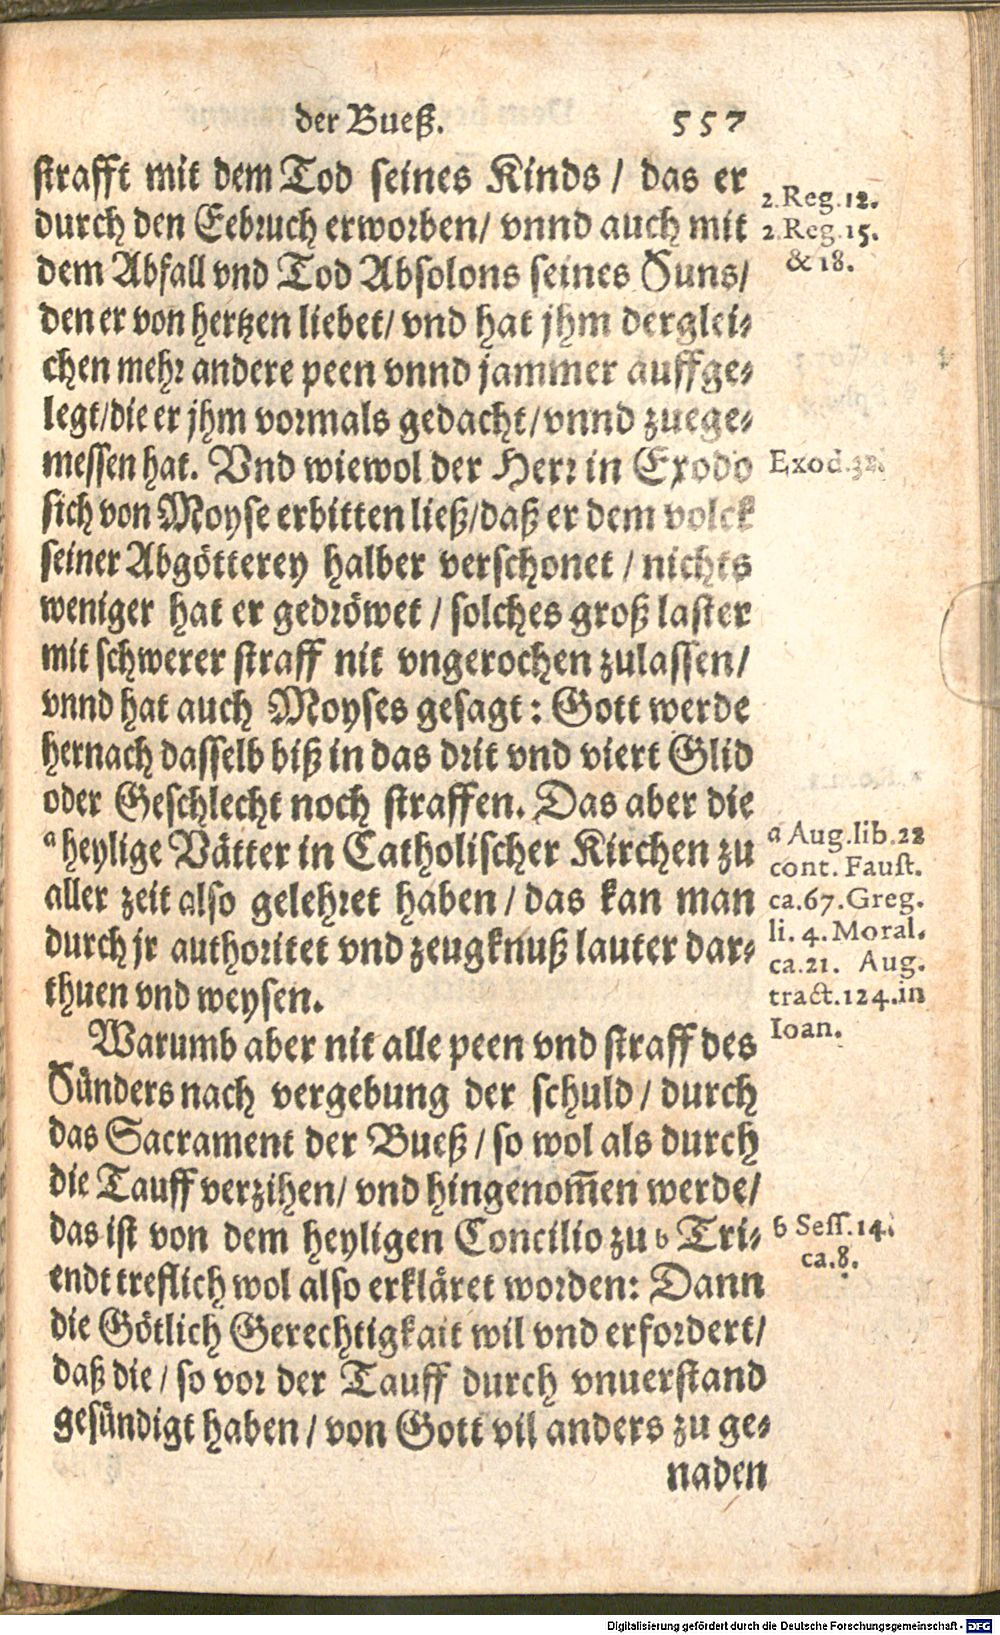 der Bueß. 557
strafft mit dem Tod seines Kinds / das er
durch den Eebruch erworben / vnnd auch mit
dem Abfall vnd Tod Absolons seines Suns /
den er von hertzen liebet / vnd hat jhm derglei-
chen mehr andere peen vnnd jammer auffge-
legt / die er jhm vormals gedacht / vnnd zuege-
messen hat. Vnd wiewol der Herr in Exodo
sich von Moyse erbitten ließ / daß er dem volck
seiner Abgötterey halber verschonet / nichts
weniger hat er gedröwet / solches groß laster
mit schwerer straff nit vngerochen zulassen /
vnnd hat auch Moyses gesagt : Gott werde
hernach dasselb biß in das drit vnd viert Glid
oder Geschlecht noch straffen. Das aber die
a heylige Vätter in Catholischer Kirchen zu
aller zeit also gelehret haben / das kan man
durch jr authoritet vnd zeugknuß lauter dar-
thuen vnd weysen.
Warumb aber nit alle peen vnd straff des
Sünders nach vergebung der schuld / durch
das Sacrament der Bueß / so wol als durch
die Tauff verzihen / vnd hingenom̄en werde /
das ist von dem heyligen Concilio zu b Tri-
endt treflich wol also erkläret worden: Dann
die Götlich Gerechtigkait wil vnd erfordert /
daß die / so vor der Tauff durch vnuerstand
gesündigt haben / von Gott vil anders zu ge-
naden
2. Reg. 12.
2. Reg. 15.
& 18.
Exod. 32.
a Aug. lib. 22
cont. Faust.
ca. 67. Greg.
li. 4. Moral.
ca. 21. Aug.
tract. 124. in
Ioan.
b Sess. 14.
ca. 8.
Digitalisierung gefördert durch die Deutsche Forschungsgemeinschaft - DFG